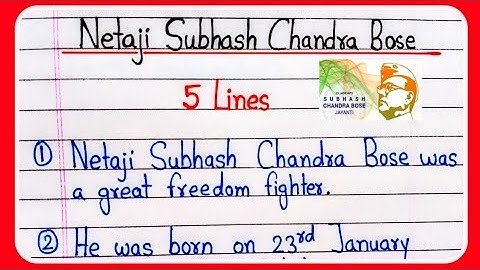 Netaji Subhash Chandra Bose
5 Lines
23 JANUARY
SUBHASH
CHANDRA BOSE
JAYANTI
① Netaji Subhash Chandra Bose was
a great freedom fighter.
② He was born on 23rd January